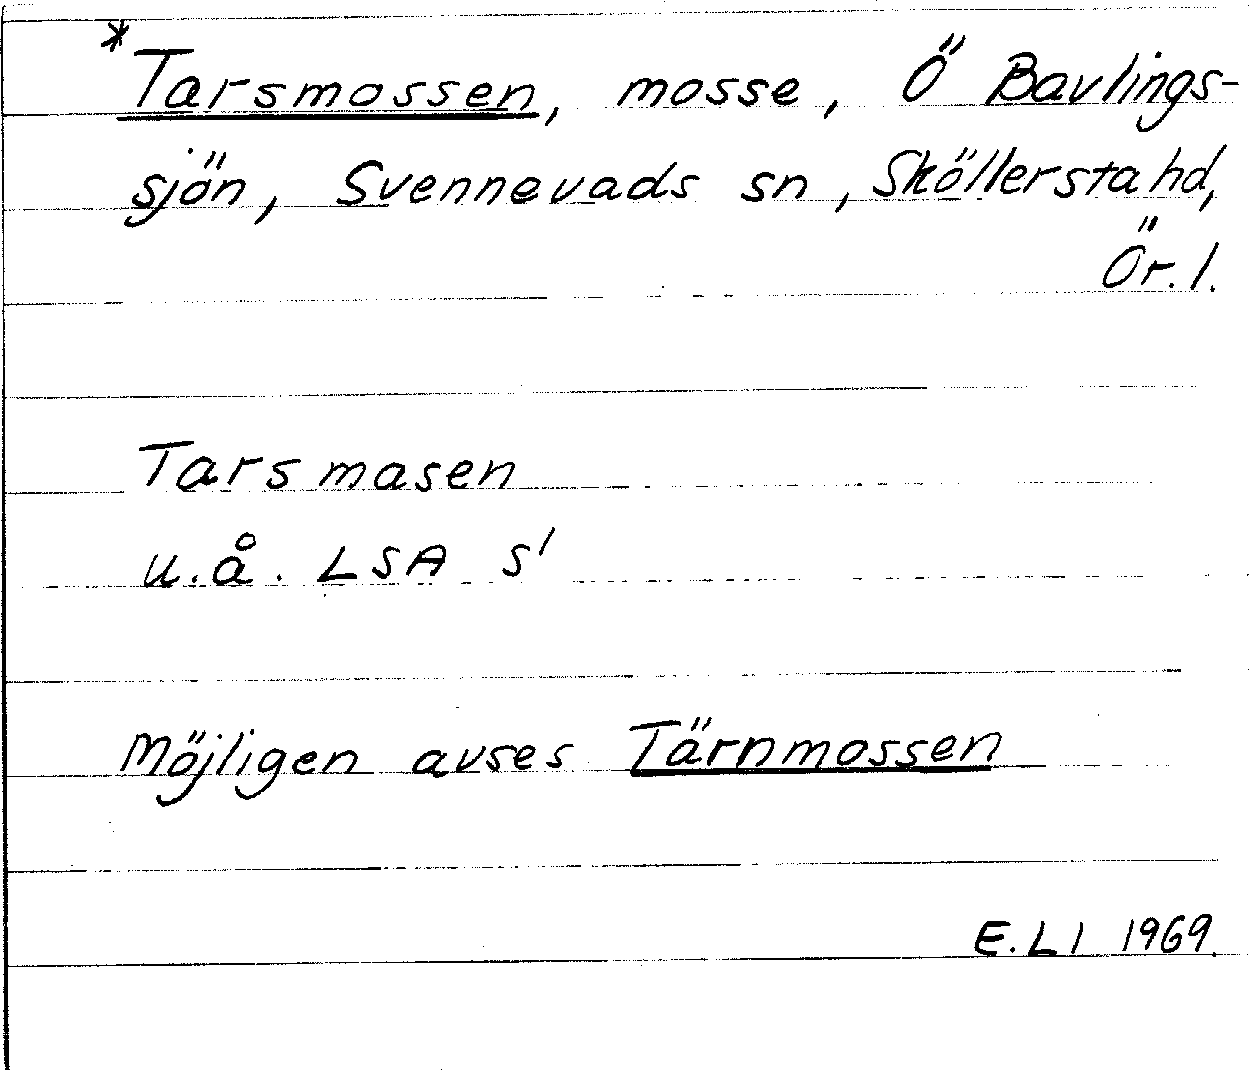 *Tarsmossen, mosse, Ö Bavlings-
sjön, Svennevads sn, Sköllersta hd,
Ör. l.
Tarsmasen
u.å. LSA S1
Möjligen avses Tärnmossen
E. Ll 1969.